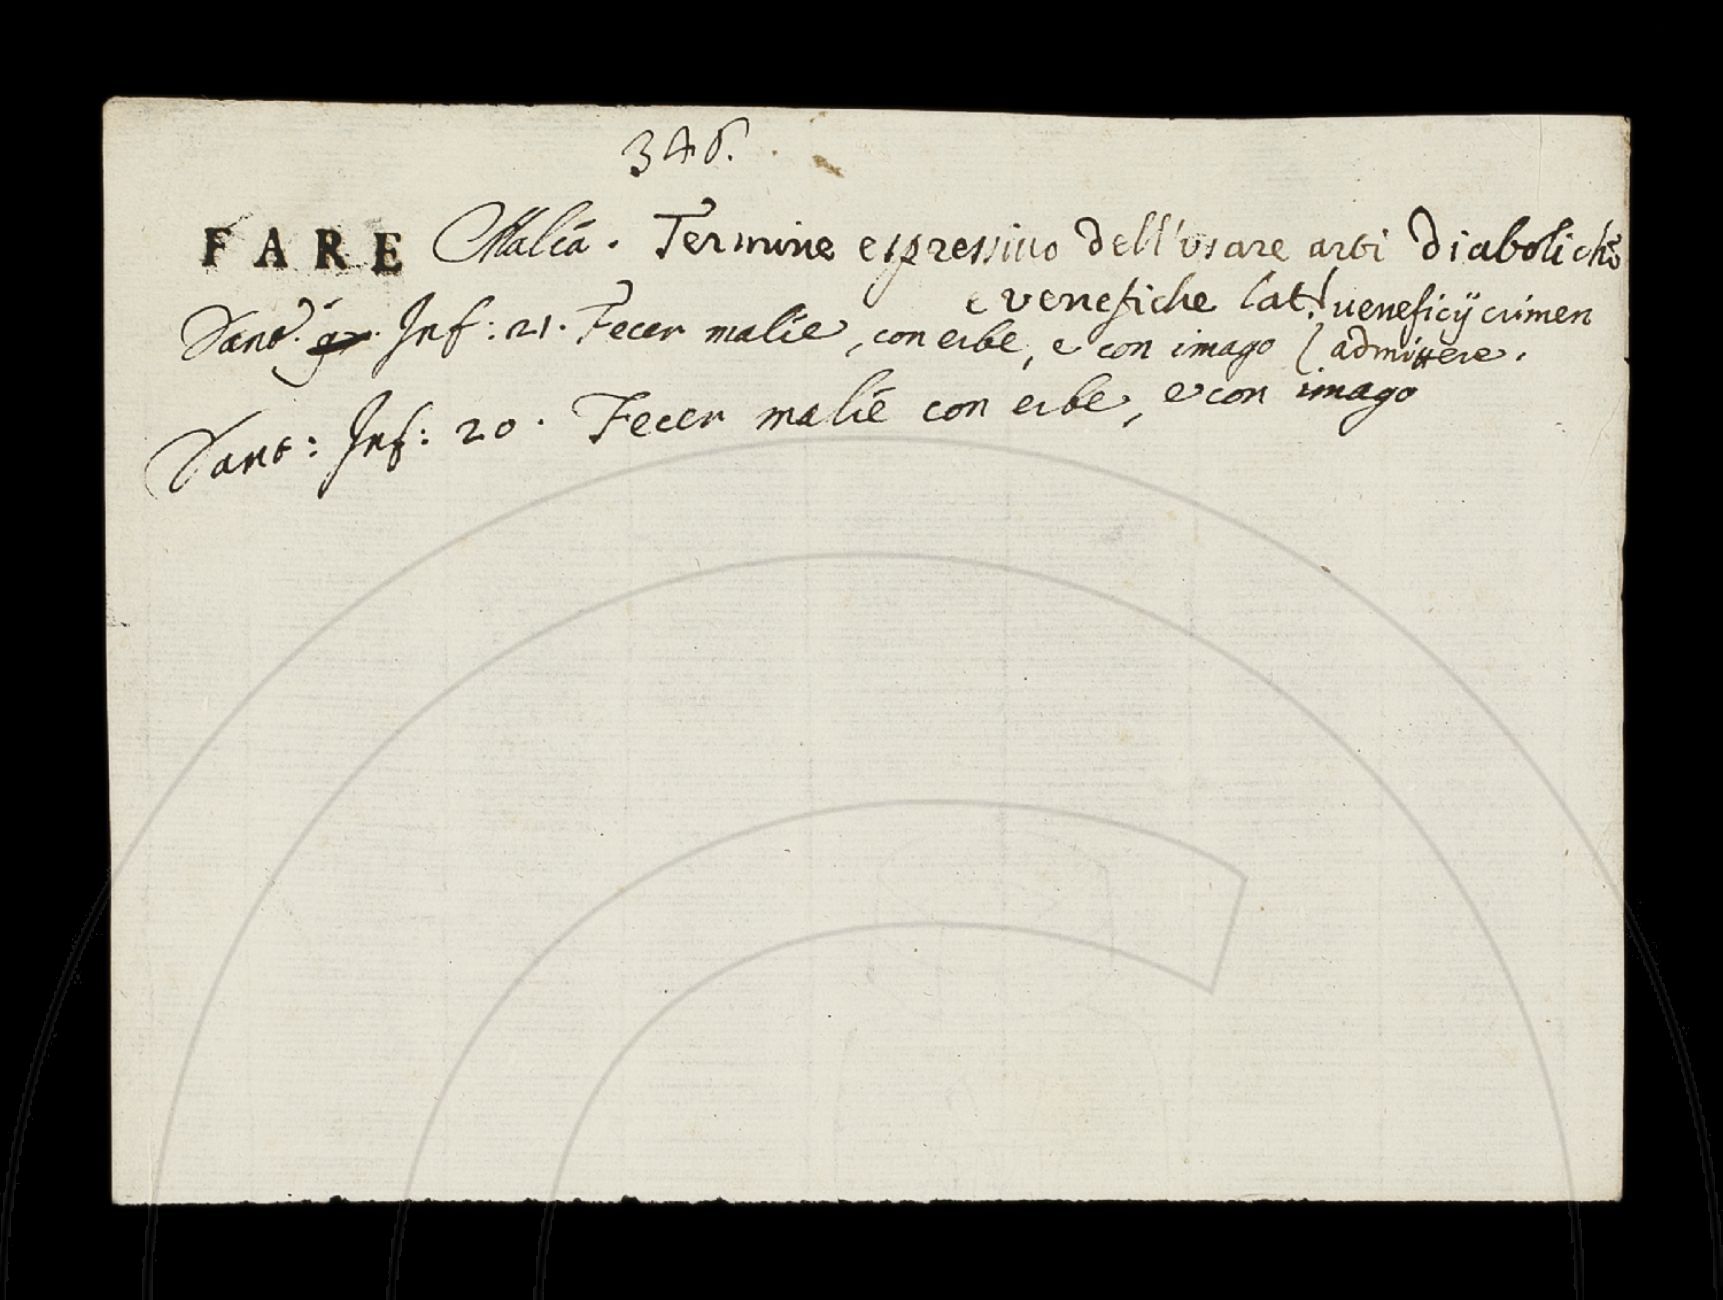 346.
FARE Malia. Termine espressiuo dell'vsare arti diaboliche
e venefiche lat. veneficij crimen
Dant. Inf: 21. Fecer malie, con erbe, e con imago admittere.
Dant: Inf: 20. Fecer malie con erbe, e con imago